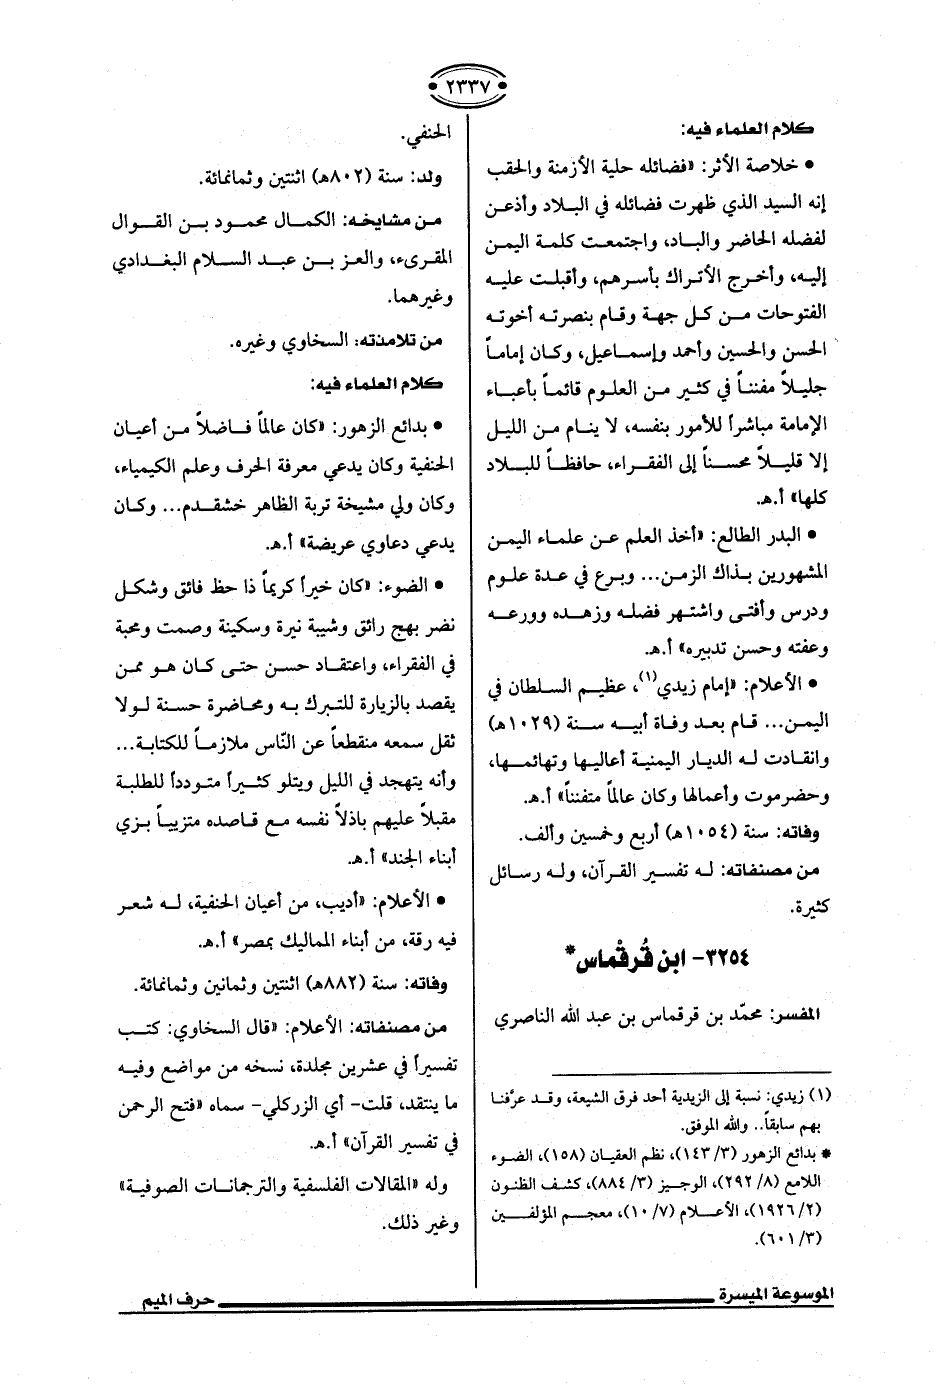 ٢٣٣٧
كلام العلماء فيه:
• خلاصة الأثر: «فضائله حلية الأزمنة والحقب
إنه السيد الذي ظهرت فضائله في البلاد وأذعن
لفضله الحاضر والباد، واجتمعت كلمة اليمن
إليه، وأخرج الأتراك بأسرهم، وأقبلت عليه
الفتوحات من كل جهة وقام بنصرته أخوته
الحسن والحسين وأحمد وإسماعيل، وكان إماماً
جليلاً مفنناً في كثير من العلوم قائماً بأعباء
الإمامة مباشراً للأمور بنفسه، لا ينام من الليل
إلا قليلاً محسناً إلى الفقراء، حافظاً للبلاد
كلها» أ.هـ.
• البدر الطالع: «أخذ العلم عن علماء اليمن
المشهورين بذاك الزمن... وبرع في عدة علوم
ودرس وأفتى واشتهر فضله وزهده وورعه
وعفته وحسن تدبيره» أ.هـ.
• الأعلام: «إمام زيدي(١)، عظيم السلطان في
اليمن... قام بعد وفاة أبيه سنة (١٠٢٩هـ)
وانقادت له الديار اليمنية أعاليها وتهائمها،
وحضرموت وأعمالها وكان عالماً متفنناً» أ.هـ.
وفاته: سنة (١٠٥٤هـ) أربع وخمسين وألف.
من مصنفاته: له تفسير القرآن، وله رسائل
كثيرة.
٣٢٥٤- ابن قُرقْماس*
المفسر: محمّد بن قرقماس بن عبد الله الناصري
(١) زيدي: نسبة إلى الزيدية أحد فرق الشيعة، وقد عرَّفنا
بهم سابقاً.. والله الموفق.
* بدائع الزهور (٣/ ١٤٣)، نظم العقيان (١٥٨)، الضوء
اللامع (٨/ ٢٩٢)، الوجيز (٣/ ٨٨٤)، كشف الظنون
(٢/ ١٩٢٦)، الأعلام (٧/ ١٠)، معجم المؤلفين
(٣/ ٦٠١).
الحنفي.
ولد: سنة (٨٠٢هـ) اثنتين وثمانمائة.
من مشايخه: الكمال محمود بن القوال
المقرىء، والعز بن عبد السلام البغدادي
وغيرهما.
من تلامذته: السخاوي وغيره.
كلام العلماء فيه:
• بدائع الزهور: «كان عالماً فاضلاً من أعيان
الحنفية وكان يدعي معرفة الحرف وعلم الكيمياء،
وكان ولي مشيخة تربة الظاهر خشقدم... وكان
يدعي دعاوي عريضة» أ.هـ.
• الضوء: «كان خيراً كريماً ذا حظ فائق وشكل
نضر بهج رائق وشيبة نيرة وسكينة وصمت ومحبة
في الفقراء، واعتقاد حسن حتى كان هو ممن
يقصد بالزيارة للتبرك به ومحاضرة حسنة لولا
ثقل سمعه منقطعاً عن النّاس ملازماً للكتابة...
وأنه يتهجد في الليل ويتلو كثيراً متودداً للطلبة
مقبلاً عليهم باذلاً نفسه مع قاصده متزيياً بزي
أبناء الجند» أ.هـ.
• الأعلام: «أديب، من أعيان الحنفية، له شعر
فيه رقة، من أبناء المماليك بمصر» أ.هـ.
وفاته: سنة (٨٨٢هـ) اثنتين وثمانين وثمانمائة.
من مصنفاته: الأعلام: «قال السخاوي: كتب
تفسيراً في عشرين مجلدة، نسخه من مواضع وفيه
ما ينتقد، قلت- أي الزركلي- سماه «فتح الرحمن
في تفسير القرآن» أ.هـ.
وله «المقالات الفلسفية والترجمانات الصوفية»
وغير ذلك.
الموسوعة الميسرة
حرف الميم